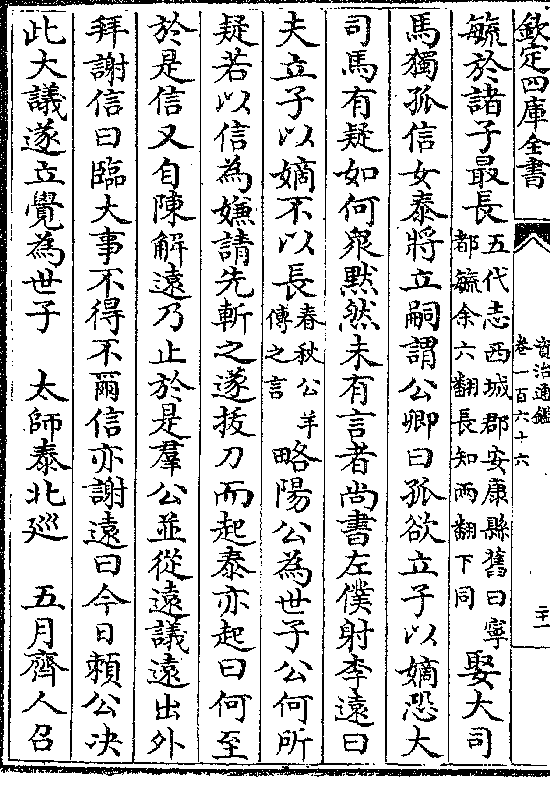 欽定四庫全書
資治通鑑
卷一百六十六
二十一
毓於諸子最長
五代志西城郡安康縣舊曰寧
都毓余六翻長知兩翻下同
娶大司
馬獨孤信女泰將立嗣謂公卿曰孤欲立子以嫡恐大
司馬有疑如何衆默然未有言者尚書左僕射李遠曰
夫立子以嫡不以長
春秋公羊
傳之言
略陽公為世子公何所
疑若以信為嫌請先斬之遂拔刀而起泰亦起曰何至
於是信又自陳解遠乃止於是羣公並從遠議遠出外
拜謝信曰臨大事不得不爾信亦謝遠曰今日賴公决
此大議遂立覺為世子　太師泰北廵　五月齊人召